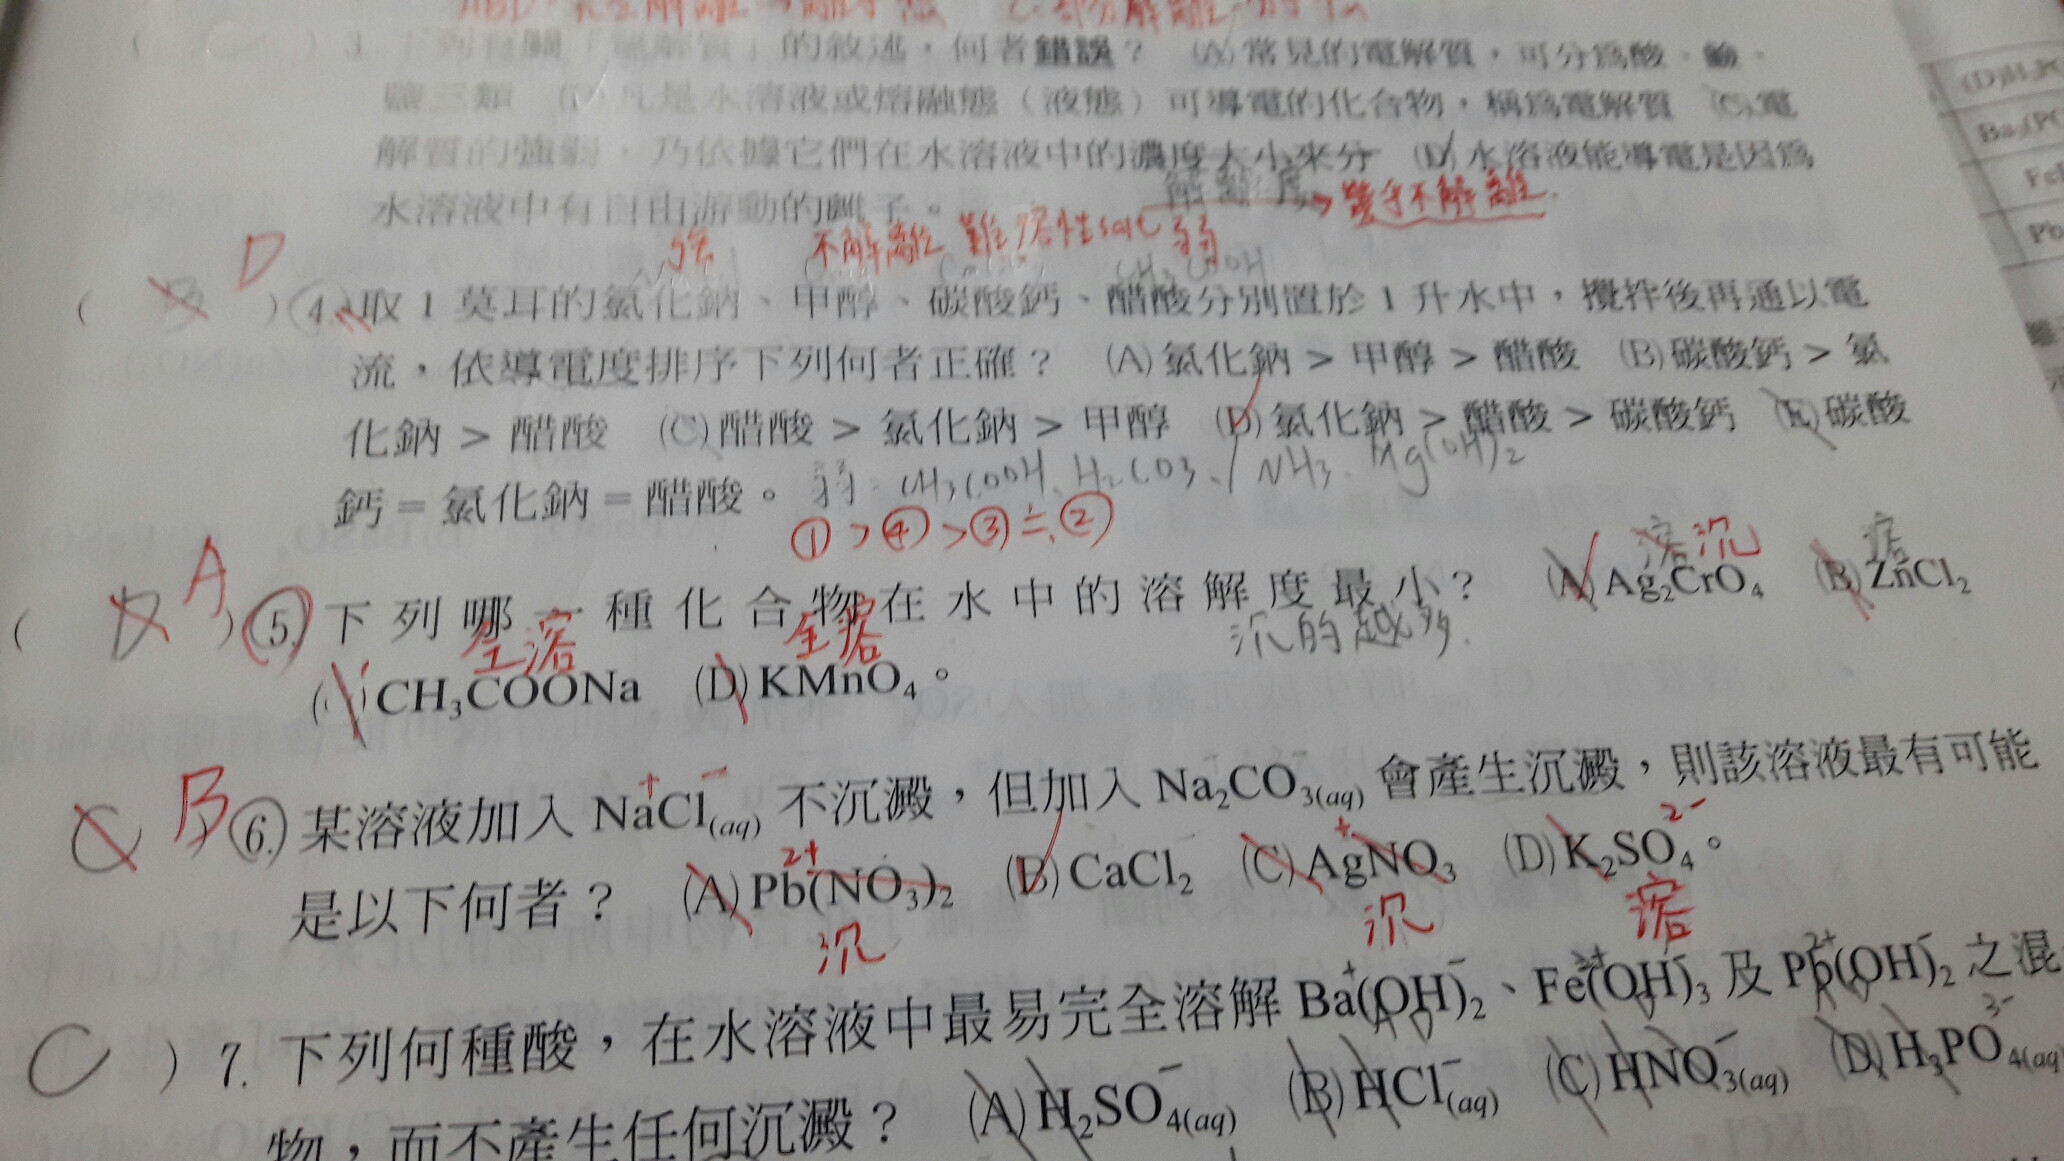 3. 下列有關「電解質」的敘述，何者錯誤？ (A)常見的電解質，可分為酸、鹼、
鹽三類 (B)凡是水溶液或熔融態（液態）可導電的化合物，稱為電解質 (C)電
解質的強弱，乃依據它們在水溶液中的濃度大小來分 (D)水溶液能導電是因為
解離度
水溶液中有自由游動的離子。
幾乎不解離
強 不解離 難溶性salt 弱
CH3COOH
D
( )4. 取 1 莫耳的氯化鈉、甲醇、碳酸鈣、醋酸分別置於 1 升水中，攪拌後再通以電
流，依導電度排序下列何者正確？ (A)氯化鈉 > 甲醇 > 醋酸 (B)碳酸鈣 > 氯
化鈉 > 醋酸 (C)醋酸 > 氯化鈉 > 甲醇 (D)氯化鈉 > 醋酸 > 碳酸鈣 (E)碳酸
鈣＝氯化鈉＝醋酸。 弱：CH3COOH、H2CO3、NH3、Mg(OH)2
① > ④ > ③ ≒ ②
A
溶 沉 溶
( )5. 下列哪一種化合物在水中的溶解度最小？ (A)Ag2CrO4 (B)ZnCl2
全溶 全溶 沉的越多
(C)CH3COONa (D)KMnO4。
C B 6. 某溶液加入 NaCl(aq) 不沉澱，但加入 Na2CO3(aq) 會產生沉澱，則該溶液最有可能
+ −
是以下何者？ (A)Pb(NO3)2 (B)CaCl2 (C)AgNO3 (D)K2SO4。
2+ + 2−
沉 沉 溶
C )7. 下列何種酸，在水溶液中最易完全溶解 Ba(OH)2、Fe(OH)3 及 Pb(OH)2 之混
物，而不產生任何沉澱？ (A)H2SO4(aq) (B)HCl(aq) (C)HNO3(aq) (D)H3PO4(aq